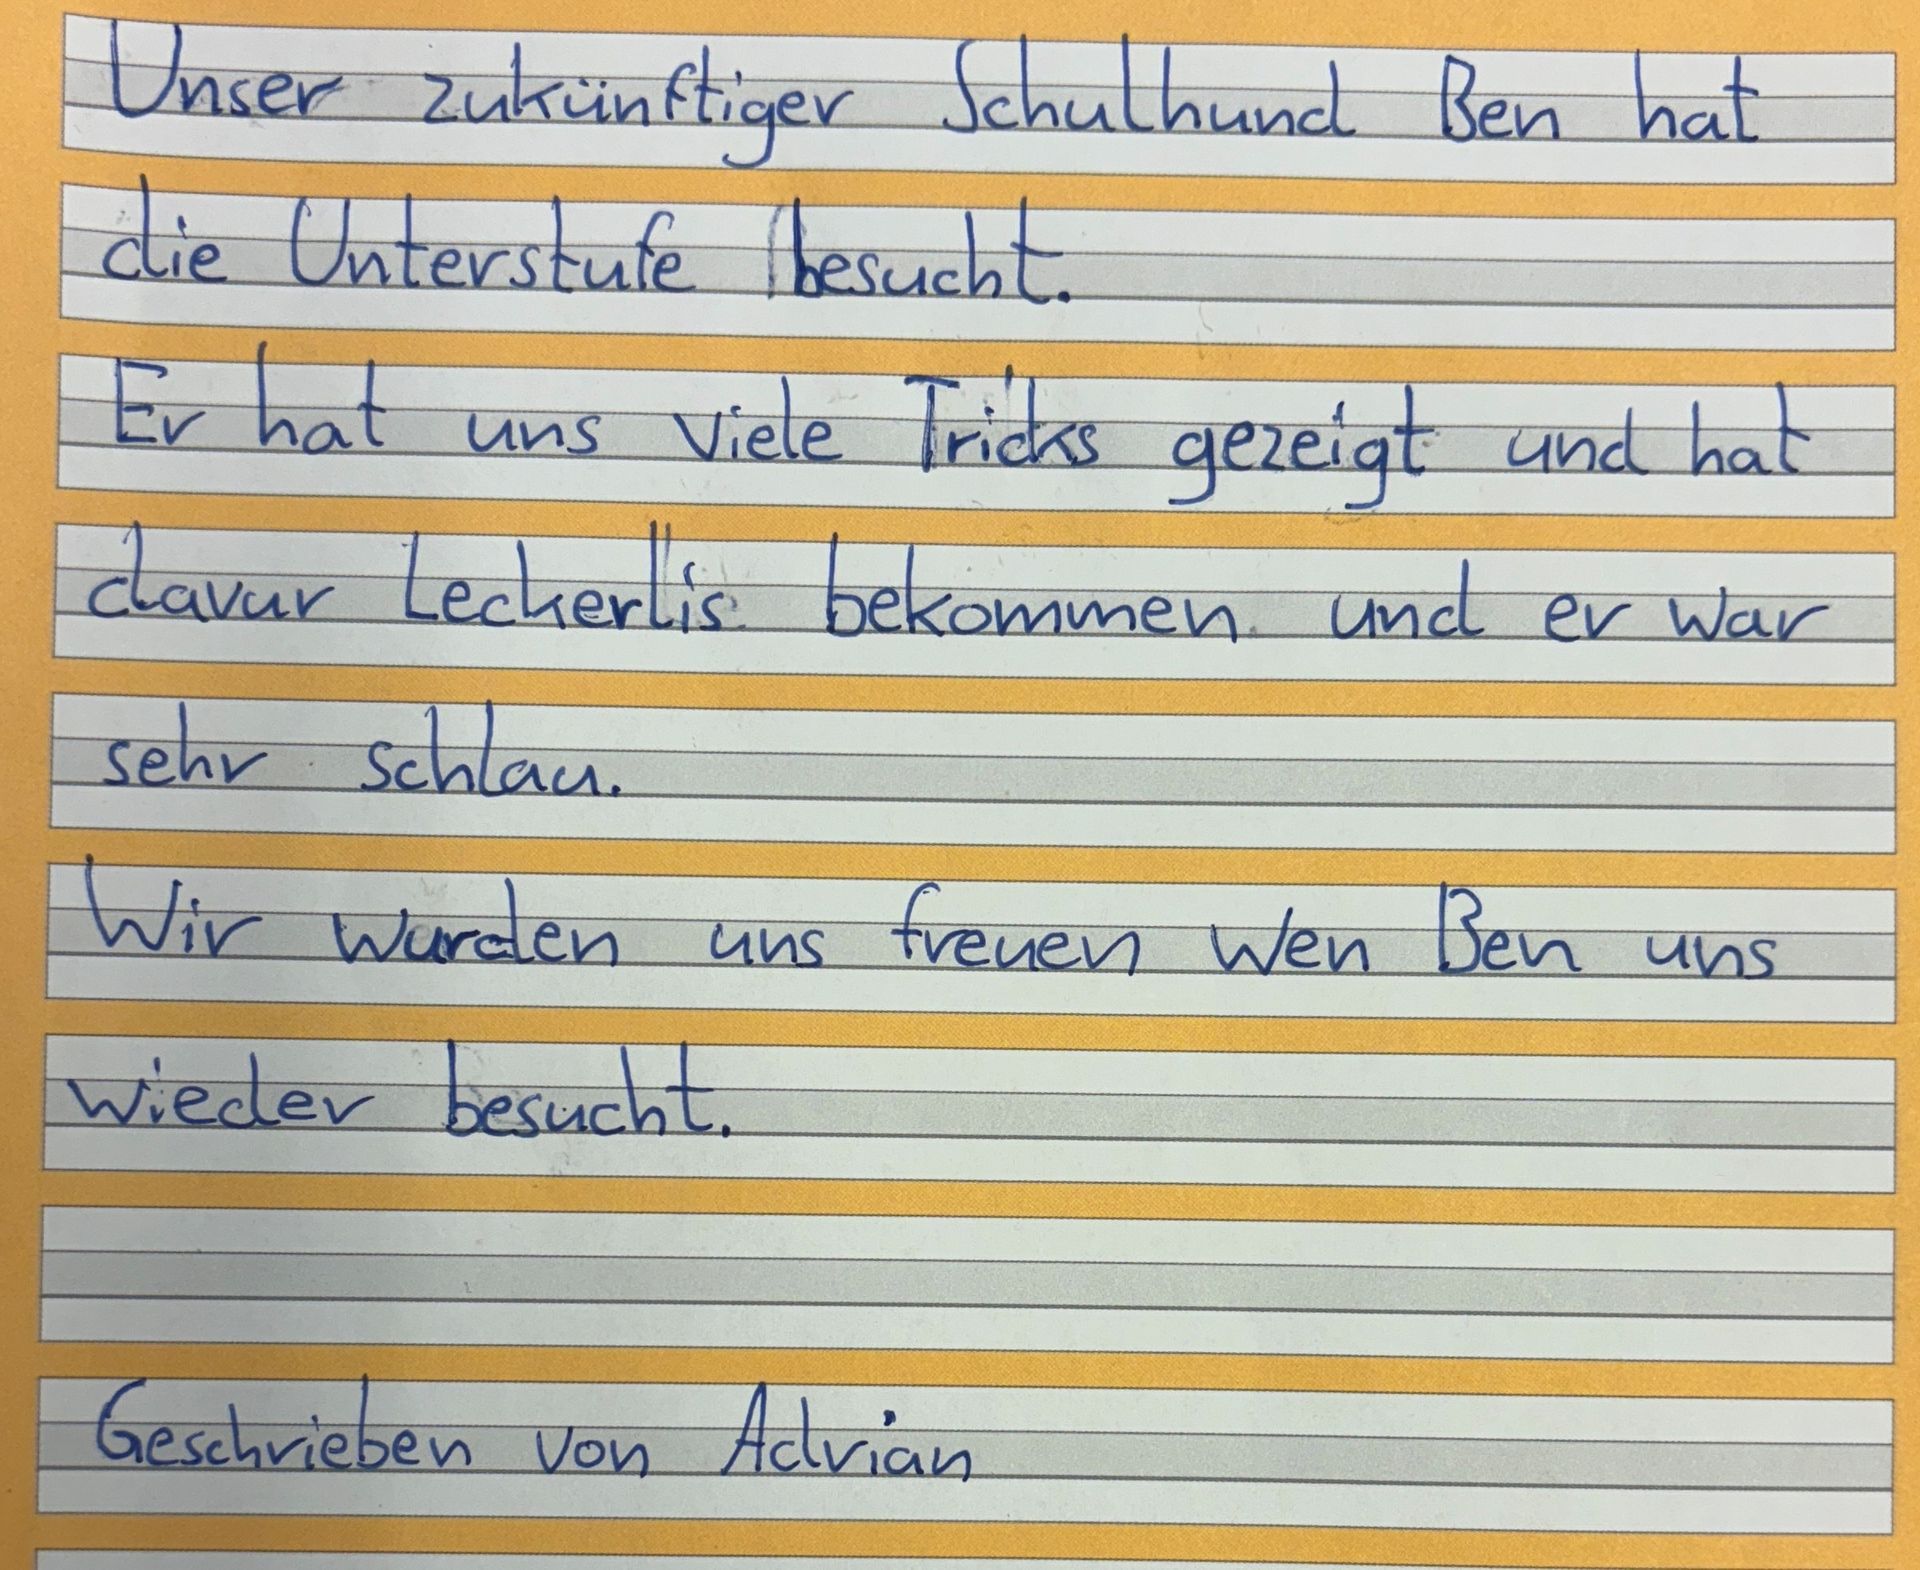 Unser zukünftiger Schulhund Ben hat
die Unterstufe besucht.
Er hat uns viele Tricks gezeigt und hat
davur Leckerlis bekommen und er war
sehr schlau.
Wir wurden uns freuen wen Ben uns
wieder besucht.
Geschrieben von Adrian